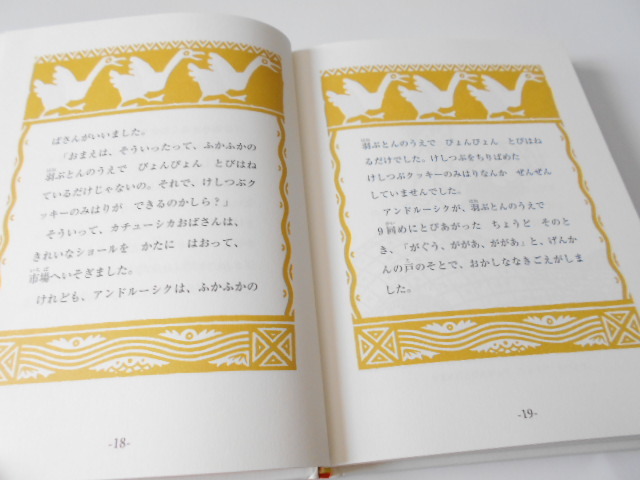 ばさんがいいました。
「おまえは、そういったって、ふかふかの
羽ぶとんのうえで ぴょんぴょん とびはね
ているだけじゃないの。それで、けしつぶク
ッキーのみはりが できるのかしら?」
そういって、カチューシカおばさんは、
きれいなショールを かたに はおって、
市場へいそぎました。
けれども、アンドルーシクは、ふかふかの
-18-
羽ぶとんのうえで ぴょんぴょん とびはね
るだけでした。けしつぶをちりばめた
けしつぶクッキーのみはりなんか ぜんぜん
していませんでした。
アンドルーシクが、羽ぶとんのうえで
9回めにとびあがった ちょうど そのと
き、「がぐう、ががあ、ががあ」と、げんか
んの戸のそとで、おかしななきごえがしま
した。
-19-